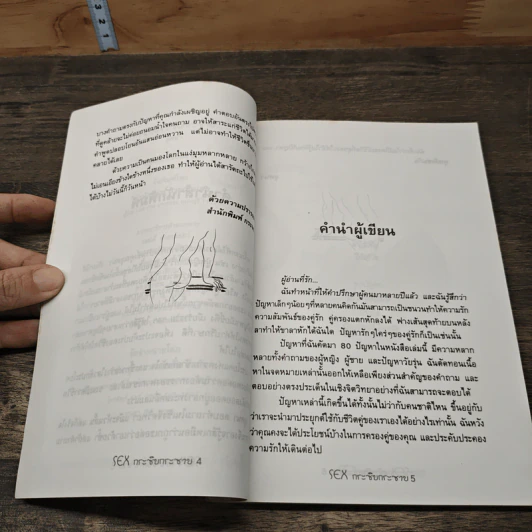 3 2 1
บางคำถามตรงกับปัญหาที่คุณกำลังเผชิญอยู่ คำตอบอันตรง
ที่ดูคล้ายจะไม่ค่อยถนอมน้ำใจคนถาม อาจให้สาระแก่ชีวิตได้
คำพูดปลอบโยนอันแสนอ่อนหวาน แต่ไม่อาจทำให้ชีวิต
คลายได้เลย
ด้วยความเป็นคนมองโลกในแง่มุมหลากหลาย กว้าง
ไม่เอนเอียงข้างใดข้างหนึ่งของเธอ ทำให้ผู้อ่านได้สาร
ได้บ้างไม่วันนี้ก็วันหน้า
ด้วยความ
สำนักพิมพ์
SEX กระซิบกระซาบ 4
คำนำผู้เขียน
ผู้อ่านที่รัก...
ฉันทำหน้าที่ให้คำปรึกษาผู้คนมาหลายปีแล้ว และฉันรู้สึกว่า
ปัญหาเล็กๆน้อยๆที่หลายคนคิดกันมันสามารถเป็นชนวนทำให้ความรัก
ความสัมพันธ์ของคู่รัก คู่ครองแตกหักลงได้ ฟางเส้นสุดท้ายบนหลัง
ลาทำให้ขาลาหักได้ฉันใด ปัญหารักๆใคร่ๆของคู่รักก็เป็นเช่นนั้น
ปัญหาที่ฉันคัดมา 80 ปัญหาในหนังสือเล่มนี้ มีความหลาก
หลายทั้งคำถามของผู้หญิง ผู้ชาย และปัญหาวัยรุ่น ฉันตัดทอนเนื้อ
หาในจดหมายเหล่านั้นออกให้เหลือเพียงส่วนสำคัญของคำถาม และ
ตอบอย่างตรงประเด็นในเชิงจิตวิทยาอย่างที่ฉันสามารถจะตอบได้
ปัญหาเหล่านี้เกิดขึ้นได้ทั้งนั้นไม่ว่ากับคนชาติไหน ขึ้นอยู่กับ
ว่าเราจะนำมาประยุกต์ใช้กับชีวิตคู่ของเราเองได้อย่างไรเท่านั้น ฉันหวัง
ว่าคุณคงจะได้ประโยชน์บ้างในการครองคู่ของคุณ และประคับประคอง
ความรักให้เดินต่อไป
SEX กระซิบกระซาบ 5